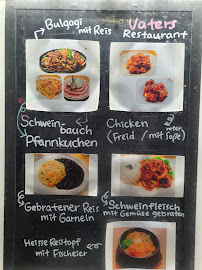 Bulgogi
mit Reis
Vaters
Restaurant
Schwein-
bauch
Pfannkuchen
Chicken
(Freid / mit roter Soße)
Gebratener Reis
mit Garneln
Schweinfleisch
mit Gemüse gebraten
Heisse Reistopf
mit Fischeier